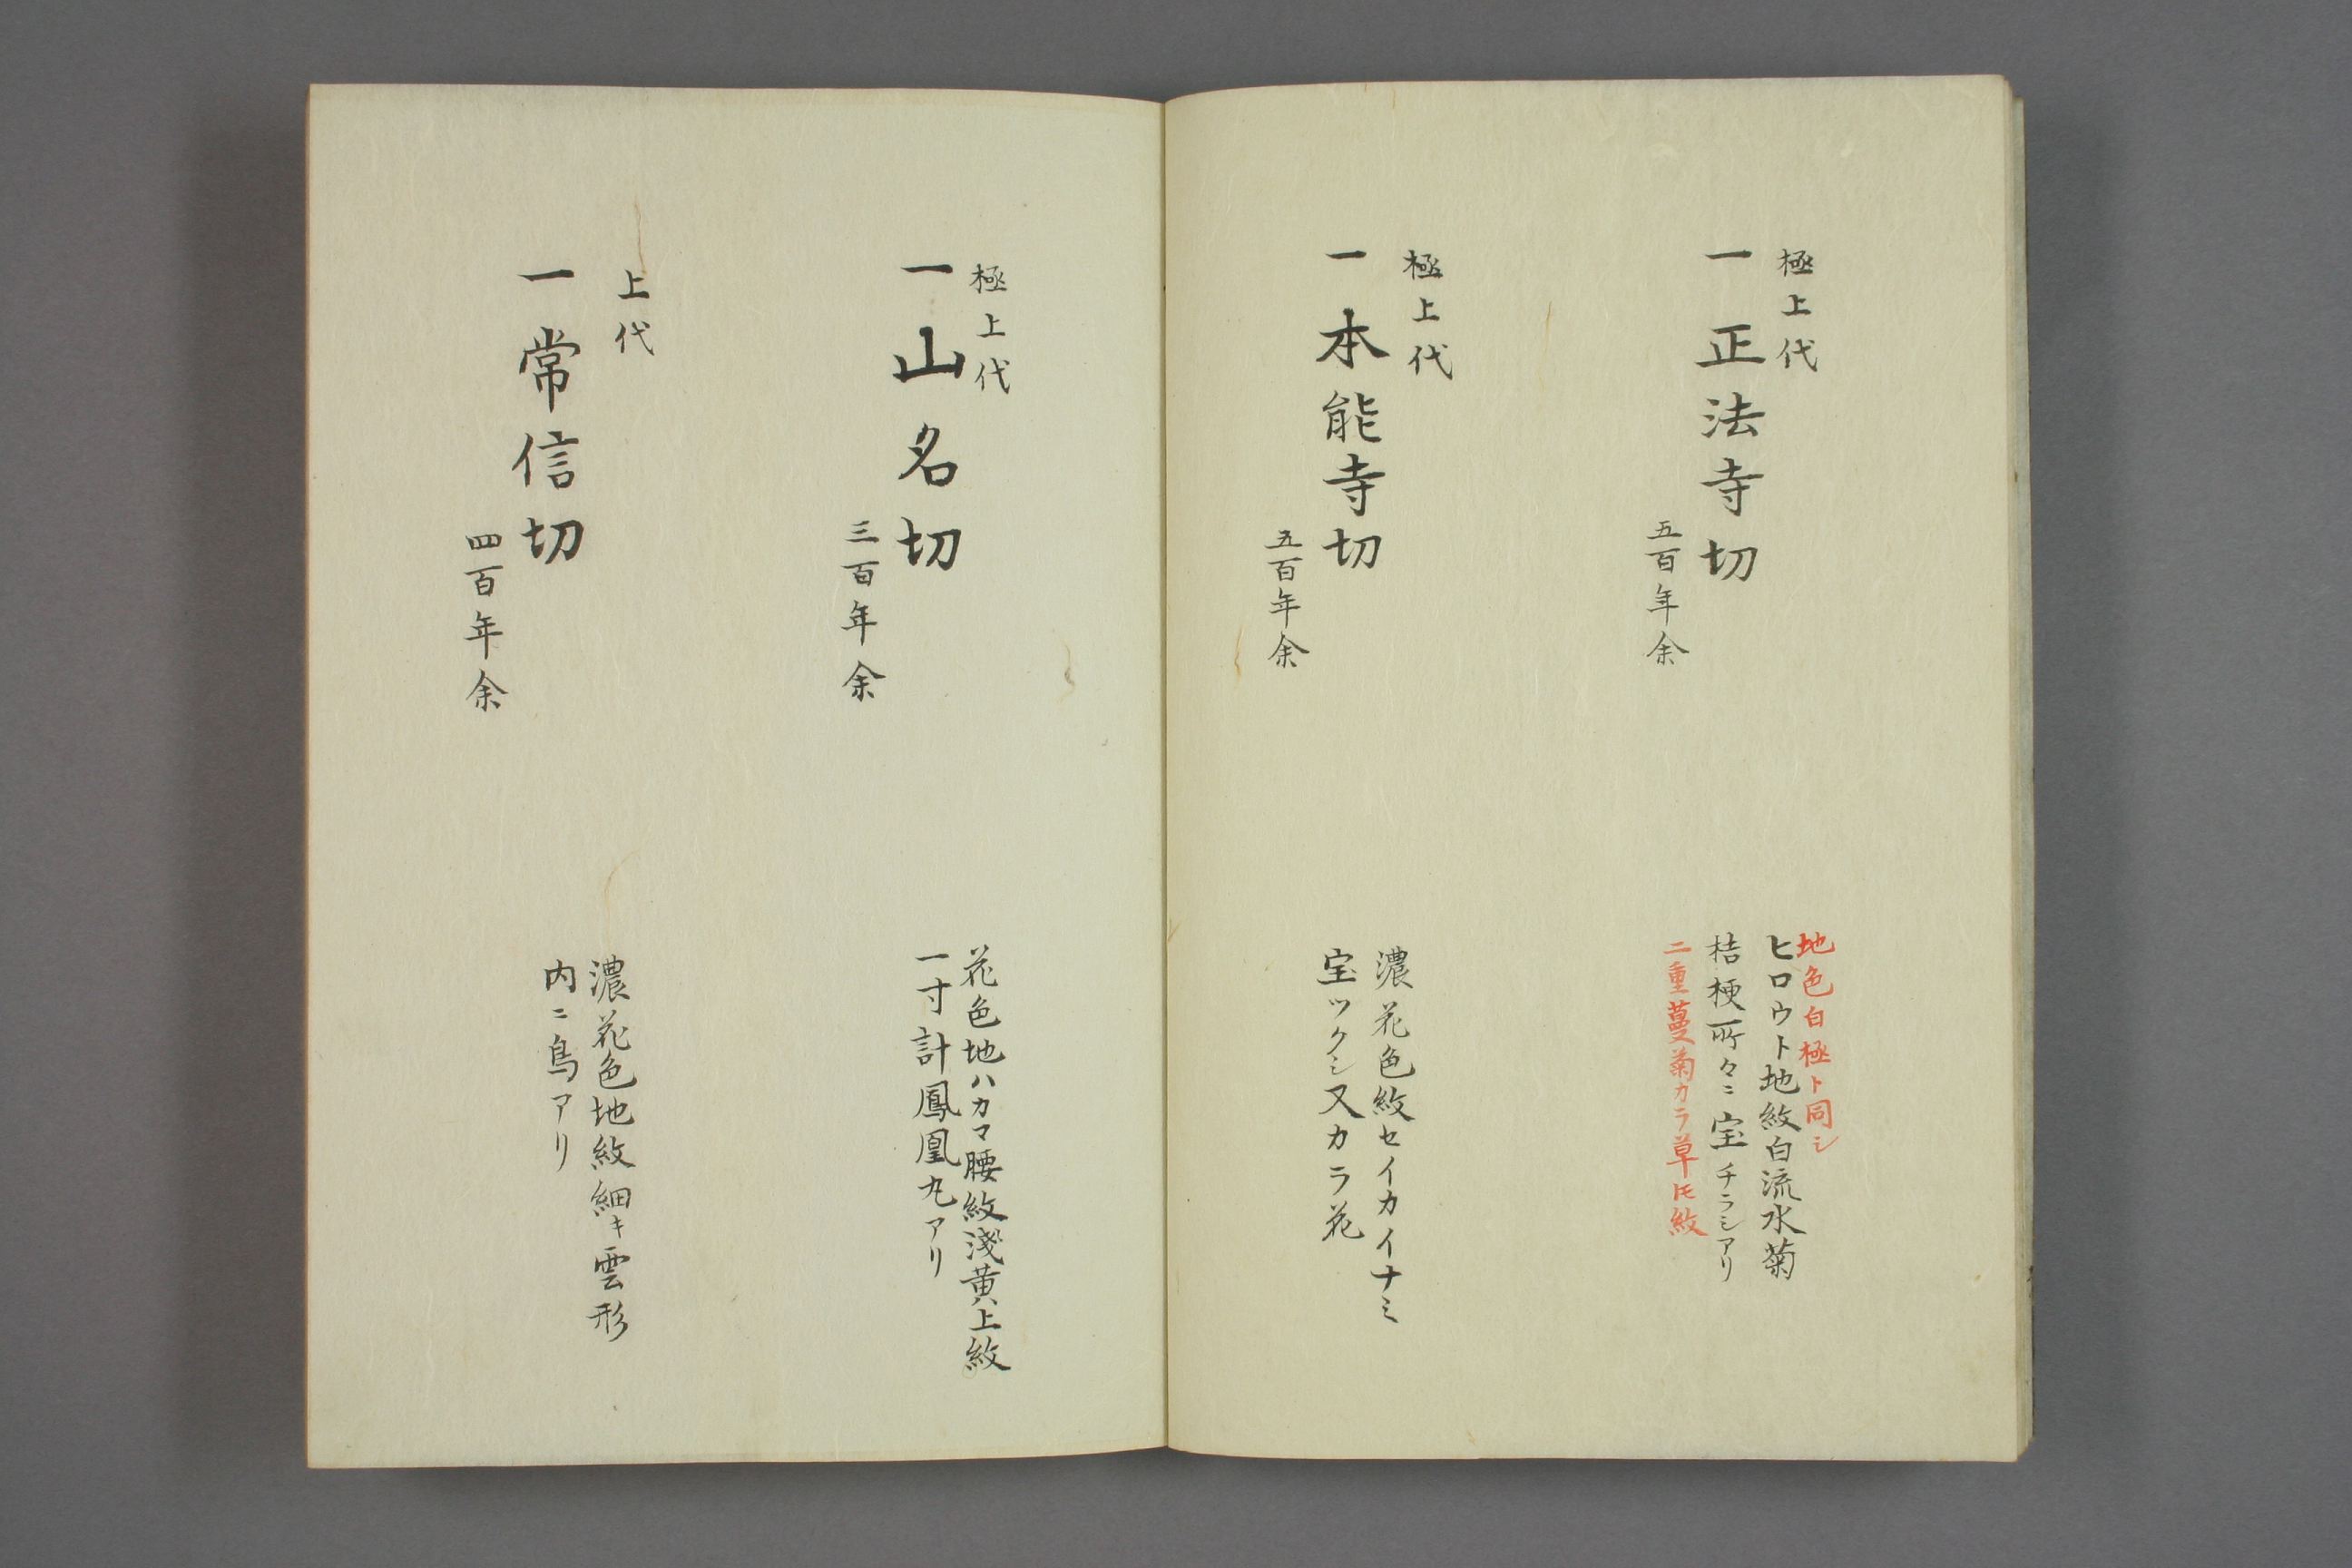 極上代
一 正法寺切
五百年余
地色白極ト同シ
ヒロウト地紋白流水菊
桔梗所々ニ宝チラシアリ
二重蔓菊カラ草ヒモ紋
極上代
一 本能寺切
五百年余
濃花色紋セイカイナミ
宝ツクシ又カラ花
極上代
一 山名切
三百年余
花色地ハカマ腰紋淺黄上紋
一寸計鳳凰丸アリ
上代
一 常信切
四百年余
濃花色地紋細キ雲形
内ニ鳥アリ